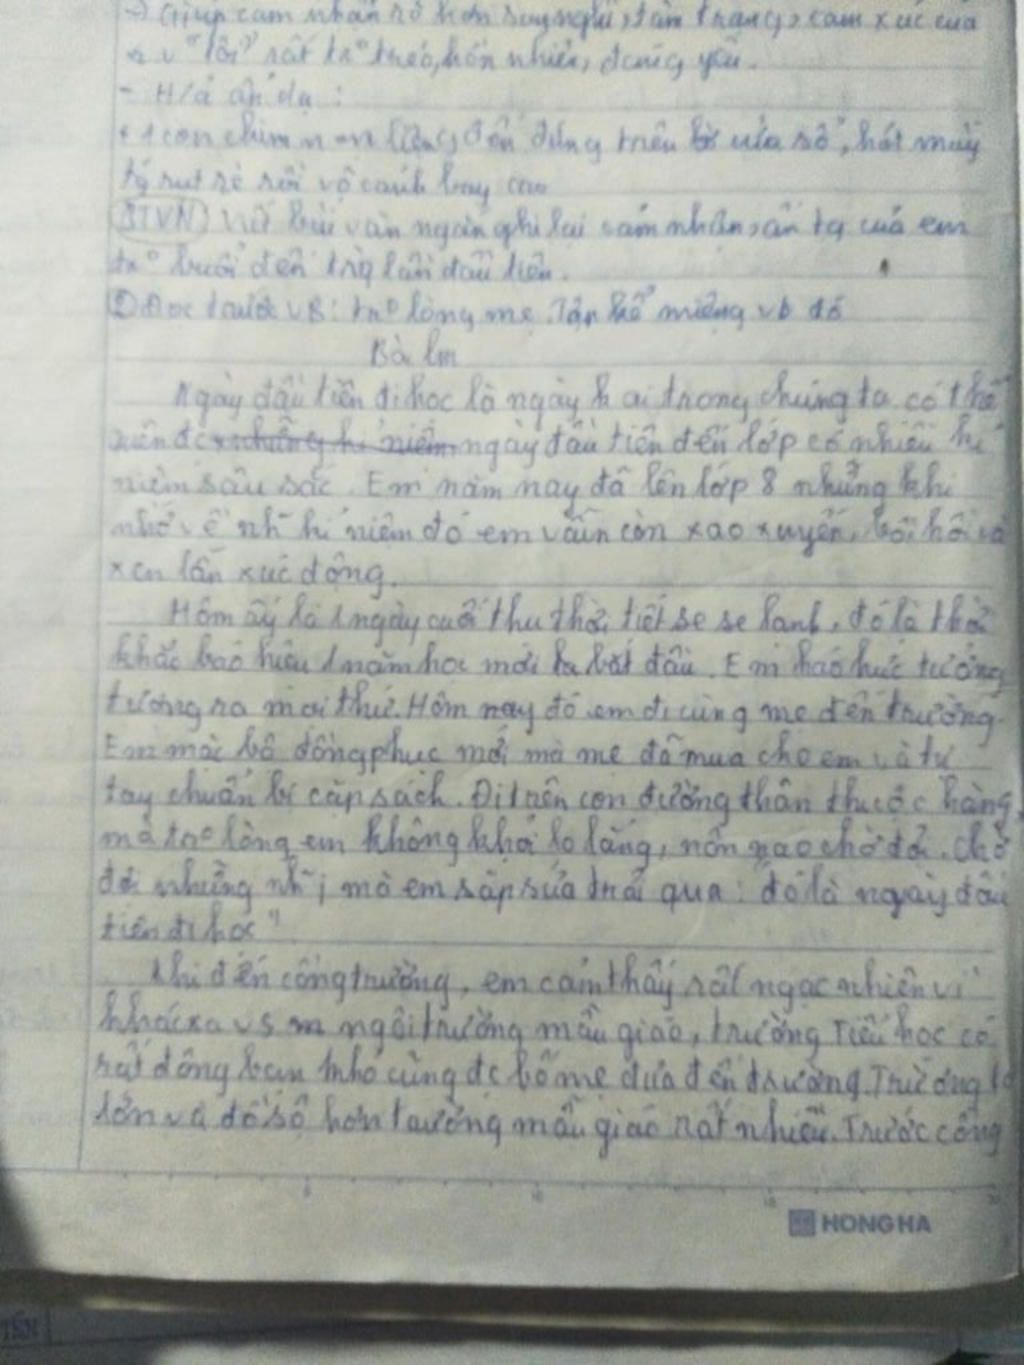 → Giúp cảm nhận rõ hơn suy nghĩ, tâm trạng, cảm xúc của
n.v "tôi" rất trº thẻo, hồn nhiên, đáng yêu.
- H/ả ẩn dụ :
+ 1 con chim non liệng đến đứng trên bờ cửa sổ, hót mấy
tg rụt rè rồi vỗ cánh bay cao
BTVN) Viết bài văn ngắn ghi lại cảm nhận, ấn tg của em
trº buổi đến trg lần đầu tiên.
② Đọc trước VB: trº lòng mẹ. Tập kể miệng vb đó
Bài làm
Ngày đầu tiên đi học là ngày k ai trong chúng ta có thể
quên đc ngày đầu tiên đến lớp có nhiều kỉ
niệm sâu sắc. Em năm nay đã lên lớp 8 nhưng khi
nhớ về nh~ kỉ niệm đó em vẫn còn xao xuyến, bồi hồi và
xen lẫn xúc động.
Hôm ấy là 1 ngày cuối thu thời tiết se se lạnh, đó là thời
khắc báo hiệu 1 năm học mới ta bắt đầu. Em háo hức tưởng
tượng ra mọi thứ. Hôm nay đó em đi cùng mẹ đến trường.
Em mặc bộ đồng phục mới mà mẹ đã mua cho em và tự
tay chuẩn bị cặp sách. Đi trên con đường thân thuộc hàng
mà trº lòng em không khỏi lo lắng, nôn nao chờ đợi. Chờ
đợi những nh~ j mà em sắp sửa trải qua: "đó là ngày đầu
tiên đi học"
Khi đến cổng trường, em cảm thấy rất ngạc nhiên vì
khác xa vs m ngôi trường mẫu giáo, trường Tiểu học có
rất đông bạn nhỏ cùng đc bố mẹ đưa đến trường. Trường to
lớn và đồ sộ hơn trường mẫu giáo rất nhiều. Trước cổng
HONG HA